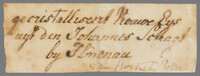 gecristalliseert Nouwe Eys
uyt den Johannes Schagt
by Ilmenau